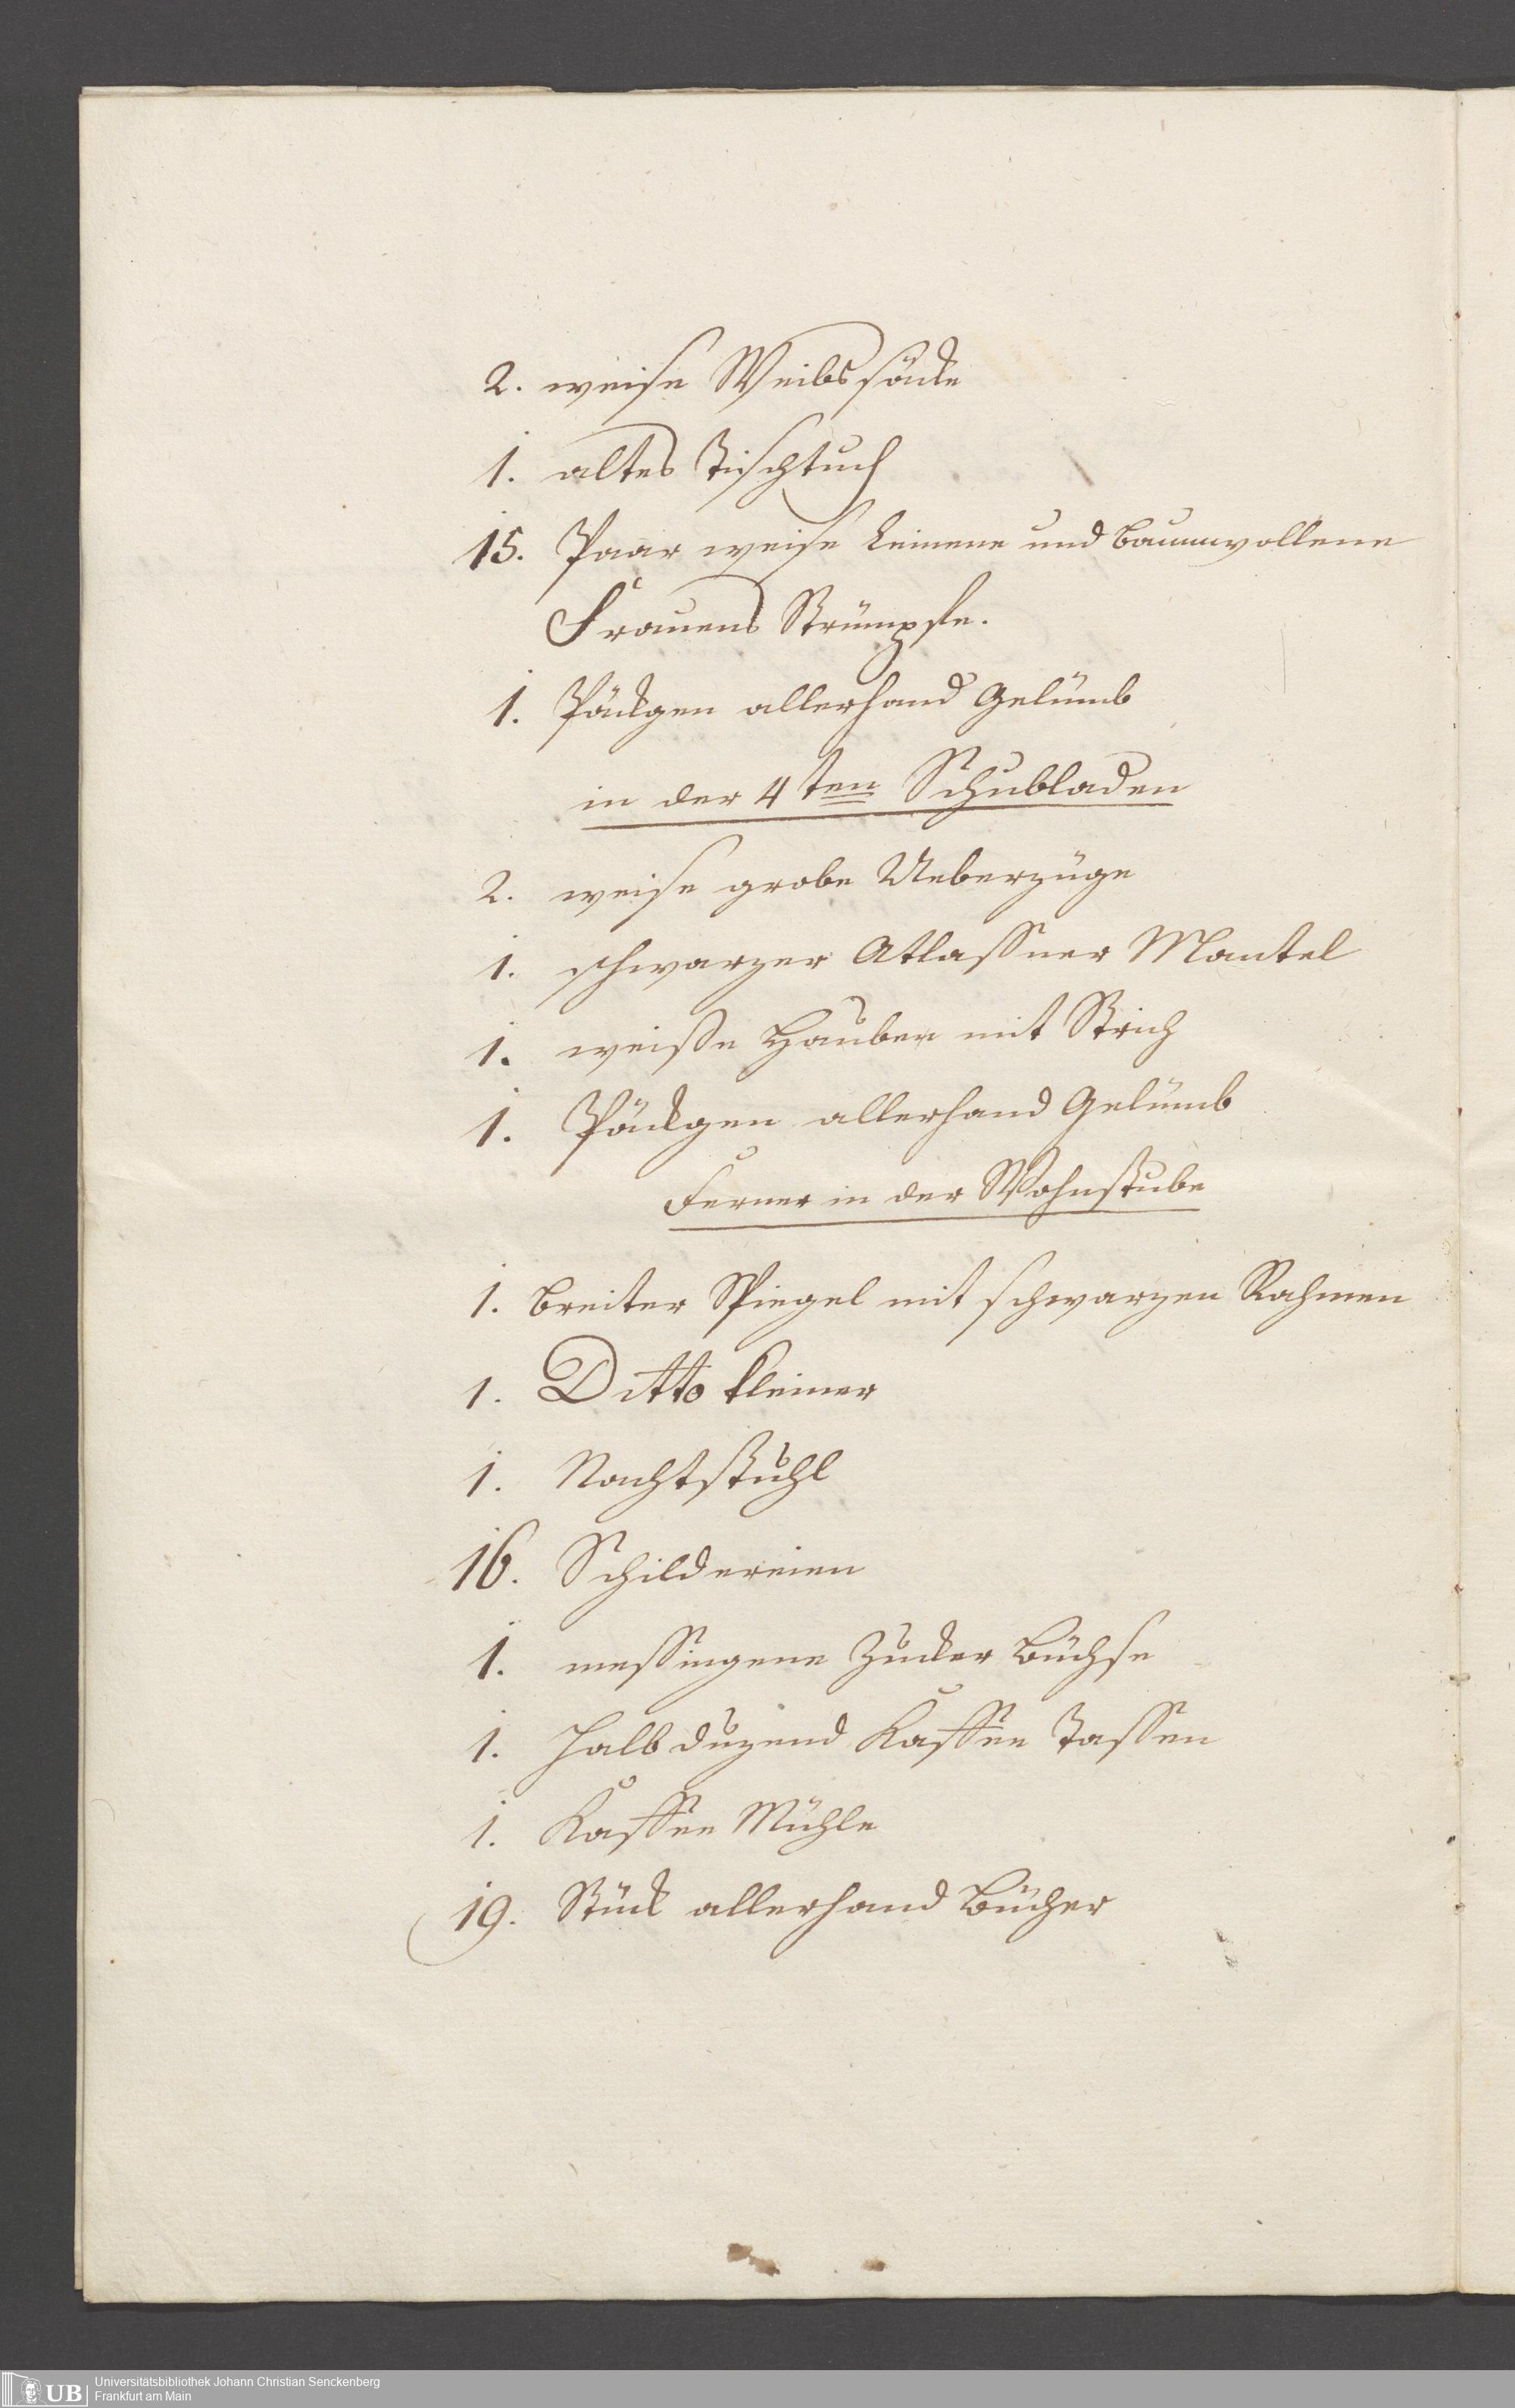 2. weise Weibssäcke
1. altes Tischtuch
15. Paar weise Leinene und Baumwollene
Frauens Strümpfe.
1. Päckgen allerhand Gelümb
in der 4ten Schubladen
2. weise grobe Ueberzüge
1. schwarzer Atlassner Mantel
1. weisse Hauben mit Strich
1. Päckgen allerhand Gelümb
Ferner in der Wohnstube
1. breiter Spiegel mit schwarzen Rahmen
1. Ditto kleiner
1. Nachtstuhl
16. Schildereien
1. messingene Zucker Büchse
1. Halb duzend Kaffee Tassen
1. Kaffee Mühle
19. Stück allerhand Bücher
UB
Universitätsbibliothek Johann Christian Senckenberg
Frankfurt am Main